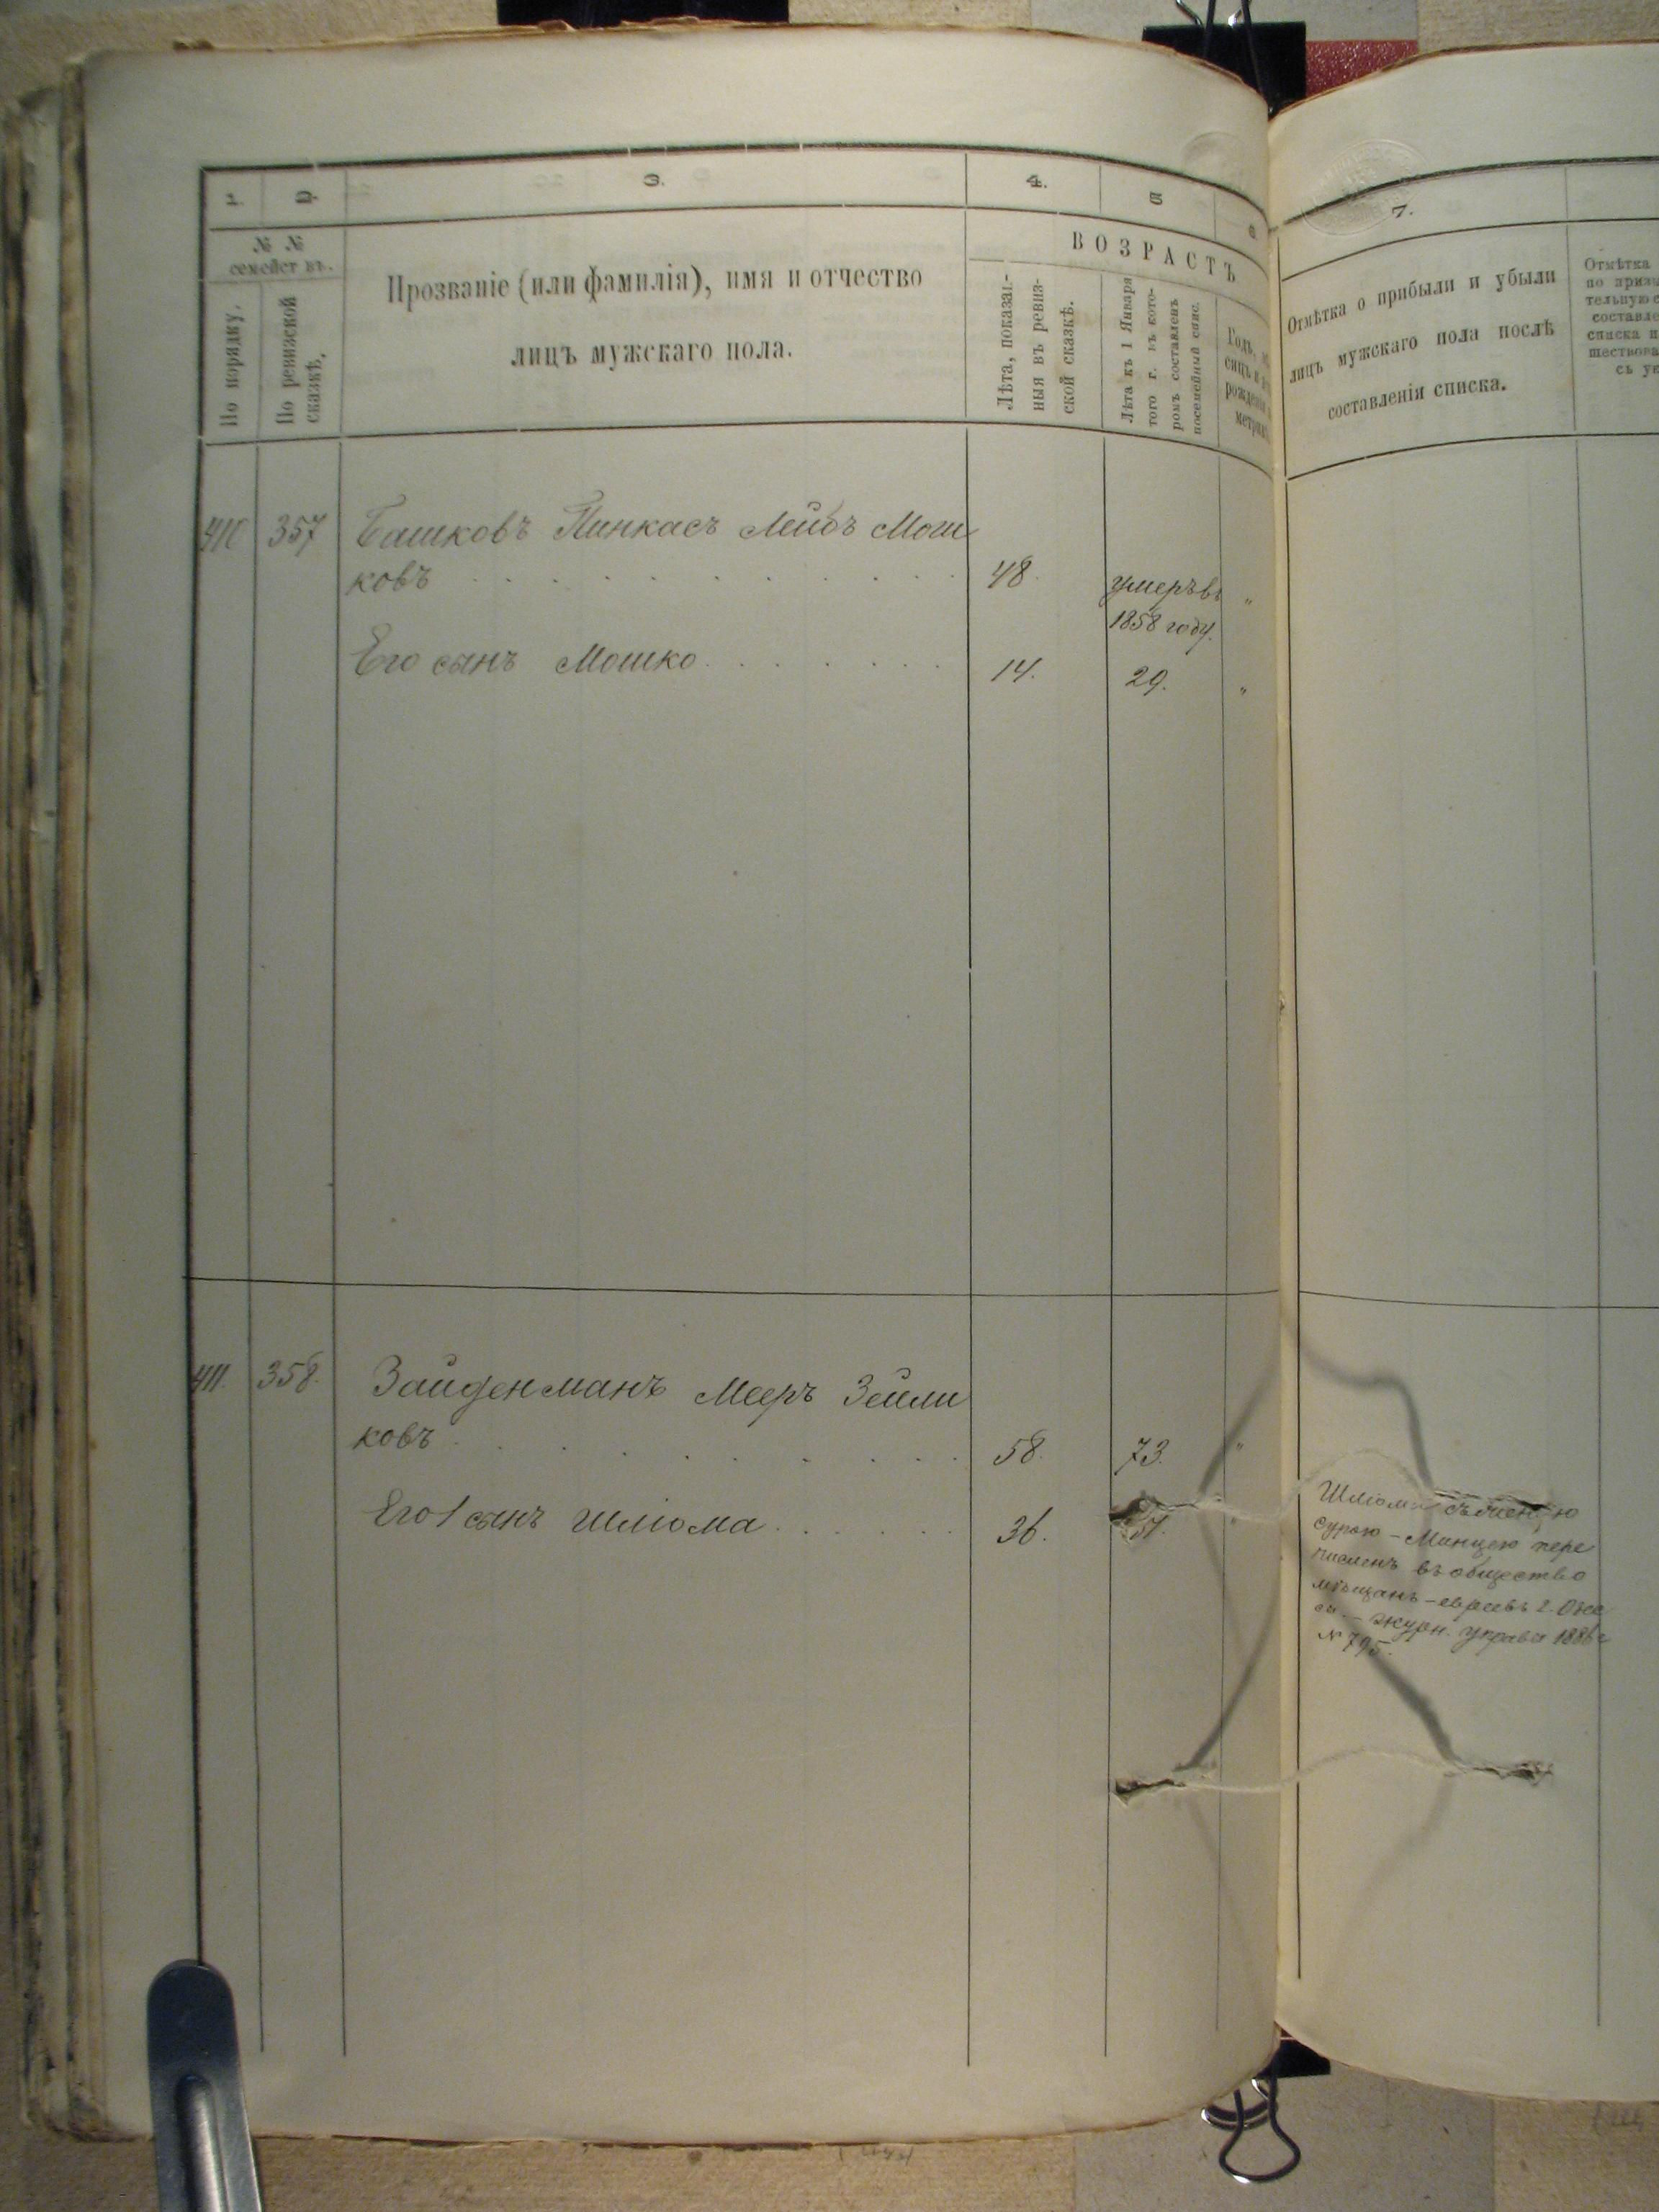 1.
2.
3.
4.
5
6
7.
№ №
семействъ.
По порядку.
По ревизской
сказкѣ.
Прозваніе (или фамилія), имя и отчество
лицъ мужскаго пола.
ВОЗРАСТЪ
Лѣта, показан-
ныя въ ревиз-
ской сказкѣ.
Лѣта къ 1 Января
того г. въ кото-
ромъ составленъ
посемейный спис.
Годъ,
рожденія
Отмѣтка о прибыли и убыли
лицъ мужскаго пола послѣ
составленія списка.
Отмѣтка
по призы
тельную
составле
списка
шествова
съ ук
410 357 Башковъ Пинкасъ Лейбъ Мош
ковъ . . . . . . . . . . 48. умеръ въ "
1858 году.
Его сынъ Мошко . . . . . . . 14. 29. "
411. 358. Зайденманъ Мееръ Зейли
ковъ . . . . . . . . 58. 73. "
Его 1 сынъ Шліома . . . . . . 36. 51. "
Шліома съ женою
Сурою-Минцею пере
численъ въ общество
мѣщанъ-евреевъ г. Оде
сы - журн. управы 1886 г
№ 795.